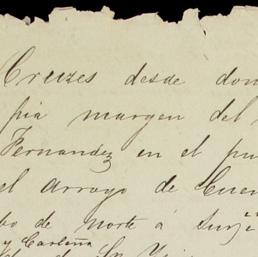 Creuzes desde don
pia margen del
Fernandez en el pu
el arroyo de Cuen
bo de norte á Sur;"
y Carleña